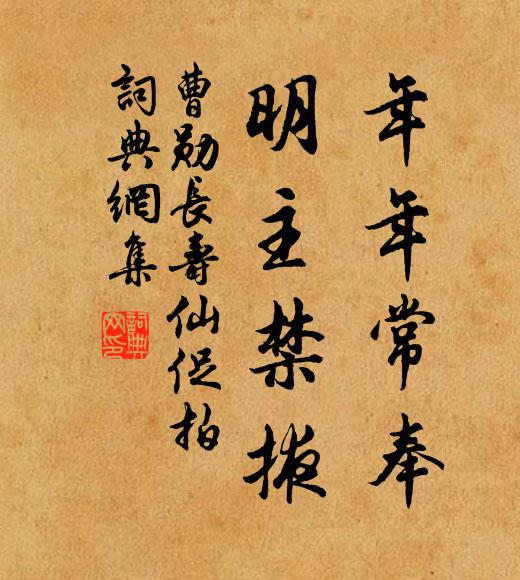 年年常奉
明主禁掖
曹勛長壽仙促拍
詞典網集
詞典
网印